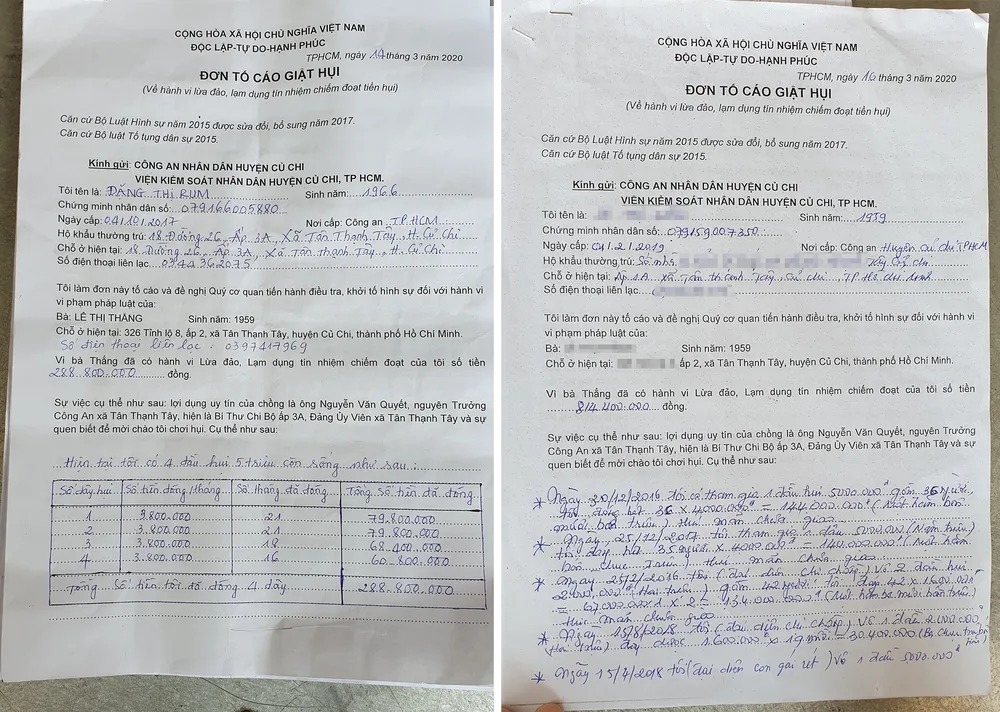 CỘNG HÒA XÃ HỘI CHỦ NGHĨA VIỆT NAM
ĐỘC LẬP-TỰ DO-HẠNH PHÚC
TPHCM, ngày 14 tháng 3 năm 2020
ĐƠN TỐ CÁO GIẬT HỤI
(Về hành vi lừa đảo, lạm dụng tín nhiệm chiếm đoạt tiền hụi)
Căn cứ Bộ Luật Hình sự năm 2015 được sửa đổi, bổ sung năm 2017.
Căn cứ Bộ luật Tố tụng dân sự 2015.
Kính gửi: CÔNG AN NHÂN DÂN HUYỆN CỦ CHI
VIỆN KIỂM SOÁT NHÂN DÂN HUYỆN CỦ CHI, TP HCM.
Tôi tên là: ĐẶNG THỊ RUM Sinh năm: 1966
Chứng minh nhân dân số: 079166005880
Ngày cấp: 04/10/2017 Nơi cấp: Công an TP.HCM
Hộ khẩu thường trú: 18 Đường 26, Ấp 3A, Xã Tân Thạnh Tây, H. Củ Chi
Chỗ ở hiện tại: 18 Đường 26, Ấp 3A, Xã Tân Thạnh Tây, H. Củ Chi
Số điện thoại liên lạc: 0344362075
Tôi làm đơn này tố cáo và đề nghị Quý cơ quan tiến hành điều tra, khởi tố hình sự đối với hành vi
vi phạm pháp luật của:
Bà: LÊ THỊ THẮNG Sinh năm: 1959
Chỗ ở hiện tại: 326 Tỉnh lộ 8, ấp 2, xã Tân Thạnh Tây, huyện Củ Chi, thành phố Hồ Chí Minh.
Số điện thoại liên lạc: 0397417969
Vì bà Thắng đã có hành vi Lừa đảo, Lạm dụng tín nhiệm chiếm đoạt của tôi số tiền
288.800.000 đồng.
Sự việc cụ thể như sau: lợi dụng uy tín của chồng là ông Nguyễn Văn Quyết, nguyên Trưởng
Công An xã Tân Thạnh Tây, hiện là Bí Thư Chi Bộ ấp 3A, Đảng Ủy Viên xã Tân Thạnh Tây và sự
quen biết để mời chào tôi chơi hụi. Cụ thể như sau:
Hiện tại tôi có 4 đầu hụi 5 triệu còn sống như sau:
Số dây hụi Số tiền đóng/tháng Số tháng đã đóng Tổng số tiền đã đóng
1 3.800.000 21 79.800.000
2 3.800.000 21 79.800.000
3 3.800.000 18 68.400.000
4 3.800.000 16 60.800.000
Tổng số tiền tôi đã đóng 4 dây 288.800.000
CỘNG HÒA XÃ HỘI CHỦ NGHĨA VIỆT NAM
ĐỘC LẬP-TỰ DO-HẠNH PHÚC
TPHCM, ngày 14 tháng 3 năm 2020
ĐƠN TỐ CÁO GIẬT HỤI
(Về hành vi lừa đảo, lạm dụng tín nhiệm chiếm đoạt tiền hụi)
Căn cứ Bộ Luật Hình sự năm 2015 được sửa đổi, bổ sung năm 2017.
Căn cứ Bộ luật Tố tụng dân sự 2015.
Kính gửi: CÔNG AN NHÂN DÂN HUYỆN CỦ CHI
VIỆN KIỂM SOÁT NHÂN DÂN HUYỆN CỦ CHI, TP HCM.
Tôi tên là: Sinh năm: 1959
Chứng minh nhân dân số: 079159007350
Ngày cấp: Nơi cấp: Công an Huyện Củ Chi TPHCM
Hộ khẩu thường trú: Số nhà Tây Củ Chi
Chỗ ở hiện tại: Ấp 1A xã Tân Thạnh Tây, Củ Chi, TP Hồ Chí Minh
Số điện thoại liên lạc
Tôi làm đơn này tố cáo và đề nghị Quý cơ quan tiến hành điều tra, khởi tố hình sự đối với hành vi
vi phạm pháp luật của:
Bà: Sinh năm: 1959
Chỗ ở hiện tại: ấp 2, xã Tân Thạnh Tây, huyện Củ Chi, thành phố Hồ Chí Minh.
Vì bà Thắng đã có hành vi Lừa đảo, Lạm dụng tín nhiệm chiếm đoạt của tôi số tiền
814.400.000 đồng.
Sự việc cụ thể như sau: lợi dụng uy tín của chồng là ông Nguyễn Văn Quyết, nguyên Trưởng
Công An xã Tân Thạnh Tây, hiện là Bí Thư Chi Bộ ấp 3A, Đảng Ủy Viên xã Tân Thạnh Tây và sự
quen biết để mời chào tôi chơi hụi. Cụ thể như sau:
* Ngày 20/12/2016 tôi có tham gia 1 đầu hụi 5000.000đ gồm 36 người,
tôi đóng hết 36 x 4000.000đ = 144.000.000đ (một trăm bốn
mươi bốn triệu) Hụi mãn chưa giao
* Ngày 25/12/2017 tôi tham gia 1 đầu 5000.000 (Năm triệu)
tôi đóng hết 35 người x 4000.000đ = 140.000.000đ (một trăm
bốn chục triệu) Hụi mãn chưa giao
* Ngày 25/2/2016 tôi (đại diện chị chấp) Vô 2 đầu hụi
2.000.000đ (Hai triệu) gồm 42 người tôi đóng 42 x 1600.000đ
= 67.000.000 x 2 = 134.000.000đ (một trăm ba mươi bốn triệu)
Hụi mãn chưa giao
* Ngày 15/8/2018 tôi (đại diện chị chấp) Vô 1 đầu 2.000.000
(Hai triệu) đóng được 1.600.000đ x 19 = 30.400.000
* Ngày 15/4/2018 tôi (đại diện con gái rét) Vô 1 đầu 5000.000đ